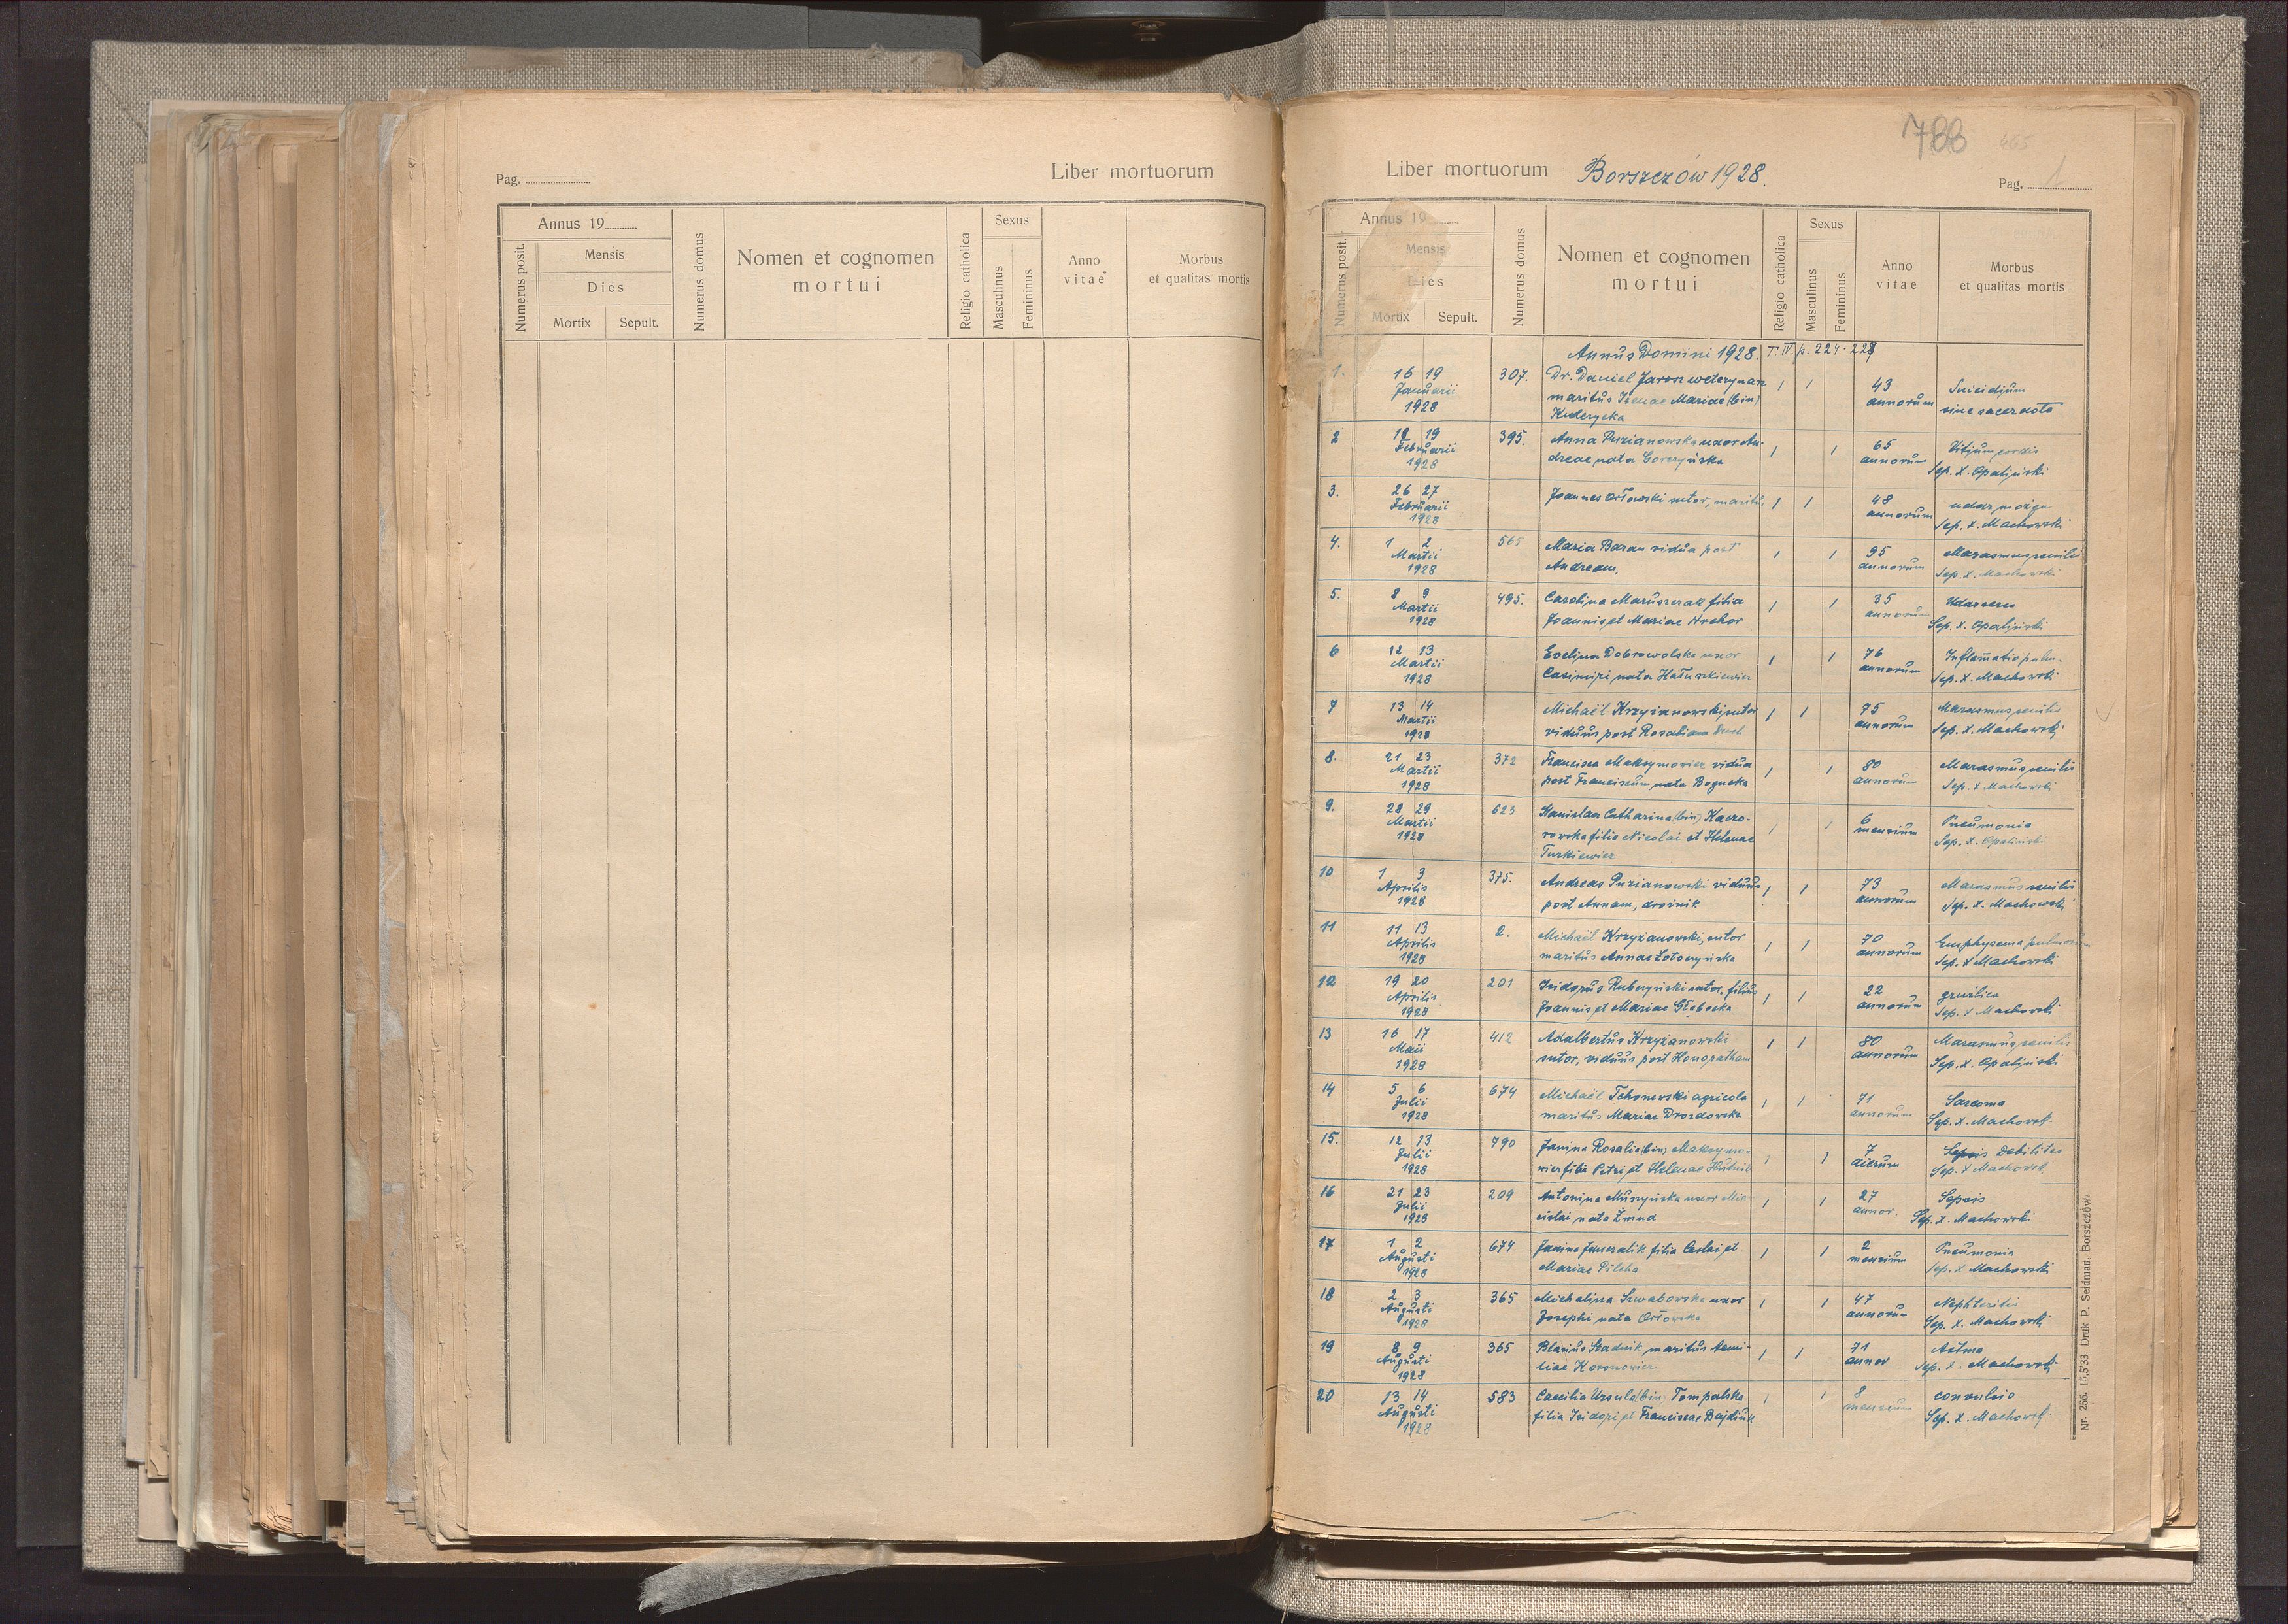 Pag.
Liber mortuorum
Annus 19
Numerus posit.
Mensis
Dies
Mortix Sepult.
Numerus domus
Nomen et cognomen
mortui
Religio catholica
Sexus
Masculinus
Femininus
Anno
vitae
Morbus
et qualitas mortis
788 465
Liber mortuorum Borszczów 1928.
Pag. 1
Annus 19
Numerus posit.
Mensis
Dies
Mortix Sepult.
Numerus domus
Nomen et cognomen
mortui
Religio catholica
Sexus
Masculinus
Femininus
Anno
vitae
Morbus
et qualitas mortis
Annus Domini 1928. T. IV. p. 224-228
1. 16 19 307. Dr. Daniel Jaron weterynarz 1 1 43 Suicidjum
Januarii maritus Irenae Mariae (bin) annorum sine sacerdote
1928
2 18 19 395. Anna Puzianowska uxor An- 1 1 65 Vitjum cordis
Februarii dreae nata Gorczyńska annorum Sep. X. Opaljński
1928
3. 26 27 Joannes Orłowski sutor, maritus 1 1 48 udar mózgu
Februarii annorum Sep. X. Machowski
1928
4. 1 2 565 Maria Baran vidua post 1 1 95 Marasmus senilis
Martii Andream, annorum Sep. X. Machowski
1928
5. 8 9 495. Carolina Maruszczak filia 1 1 35 Udar serca
Martii Joannis et Mariae Hrehor annorum Sep. X. Opaljński
1928
6 12 13 Eveljna Dobrowolska uxor 1 1 76 Inflamatio pulm.
Martii Casimiri nata Hałuszkiewicz annorum Sep. X. Machowski
1928
7 13 14 Michaël Krzyżanowski sutor 1 1 75 Marasmus senilis
Martii viduus post Rosaliam annorum Sep. X. Machowski
1928
8. 21 23 372 Francisca Maksymowicz vidua 1 1 80 Marasmus senilis
Martii post Franciscum nata Bogncka annorum Sep. X Machowski
1928
9. 28 29 623 Stanislaa Catharina (bin) Kaczo- 1 1 6 Pneumonia
Martii rowska filia Nicolai et Helenae mensium Sep. X. Opaliński
1928 Turkiewicz
10 1 3 375. Andreas Puzianowski viduus 1 1 73 Marasmus senilis
Aprilis post Annam, drożnik annorum Sep. X. Machowski
1928
11 11 13 2. Michaël Krzyżanowski, sutor 1 1 70 Emphysema pulmorum
Aprilis maritus Annae Łotoczyńska annorum Sep. X Machowski
1928
12 19 20 201 Isidorus Rubczyński sutor, filius 1 1 22 gruźlica
Aprilis Joannis et Mariae Głębocka annorum Sep. X Machowski
1928
13 16 17 412 Adalbertus Krzyżanowski 1 1 80 Marasmus senilis
Maii sutor, viduus post Honoratham annorum Sep. X. Opaljński
1928
14 5 6 674 Michaël Tchorewski agricola 1 1 71 Sarcoma
Julii maritus Mariae Drozdowska annorum Sep. X. Machowsk.
1928
15. 12 13 790 Janina Rosalia (bin) Maksymo- 1 1 7 Sepsis Debilitas
Julii wicz filia Petri et Helenae Hutnik dierum Sep. X Machowsk.
1928
16 21 23 209 Antonina Muszyńska uxor Mie 1 1 27 Sepsis
Julii cislai nata Żmud annor. Sep. X. Machowski
1928
17 1 2 674 Janina filia Ceslai et 1 1 2 Pneumonia
Augusti Mariae Pilcha mensium Sep. X Machowski
1928
18 2 3 365 Michaljna Szwabowska uxor 1 1 47 Nephteritis
Augusti Josephi nata Orłowska annorum Sep. X. Machowski
1928
19 8 9 365 Blasius Stadnik maritus Aemi- 1 1 71 Astma
Augusti liae Koronowicz annor Sep. X. Machowsk.
1928
20 13 14 583 Caecilia Ursula (bin) Tompalska 1 1 8 convulsio
Augusti filia Isidori et Franciscae Bajdiuk mensium Sep. X. Machowsk.
1928
Nr. 256. 15,5'33. Druk P. Seldman, Borszczów.